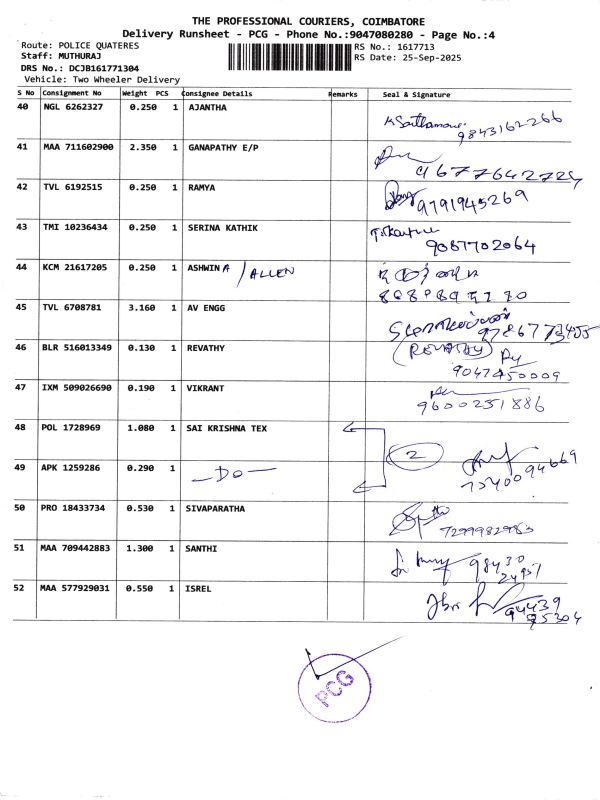 THE PROFESSIONAL COURIERS, COIMBATORE
Delivery Runsheet - PCG - Phone No.:9047080280 - Page No.:4
Route: POLICE QUATERES RS No.: 1617713
Staff: MUTHURAJ RS Date: 25-Sep-2025
DRS No.: DCJB161771304
Vehicle: Two Wheeler Delivery
S No Consignment No Weight PCS Consignee Details Remarks Seal & Signature
40 NGL 6262327 0.250 1 AJANTHA
9843162266
41 MAA 711602900 2.350 1 GANAPATHY E/P
42 TVL 6192515 0.250 1 RAMYA
9791945269
43 TMI 10236434 0.250 1 SERINA KATHIK
9087702064
44 KCM 21617205 0.250 1 ASHWIN A / ALLEN
45 TVL 6708781 3.160 1 AV ENGG
46 BLR 516013349 0.130 1 REVATHY (REVATHY)
9047450009
47 IXM 509026690 0.190 1 VIKRANT
9600251886
48 POL 1728969 1.080 1 SAI KRISHNA TEX
2
49 APK 1259286 0.290 1 —DO—
50 PRO 18433734 0.530 1 SIVAPARATHA
7299982983
51 MAA 709442883 1.300 1 SANTHI
98430
24957
52 MAA 577929031 0.550 1 ISREL
94439
95304
PCG